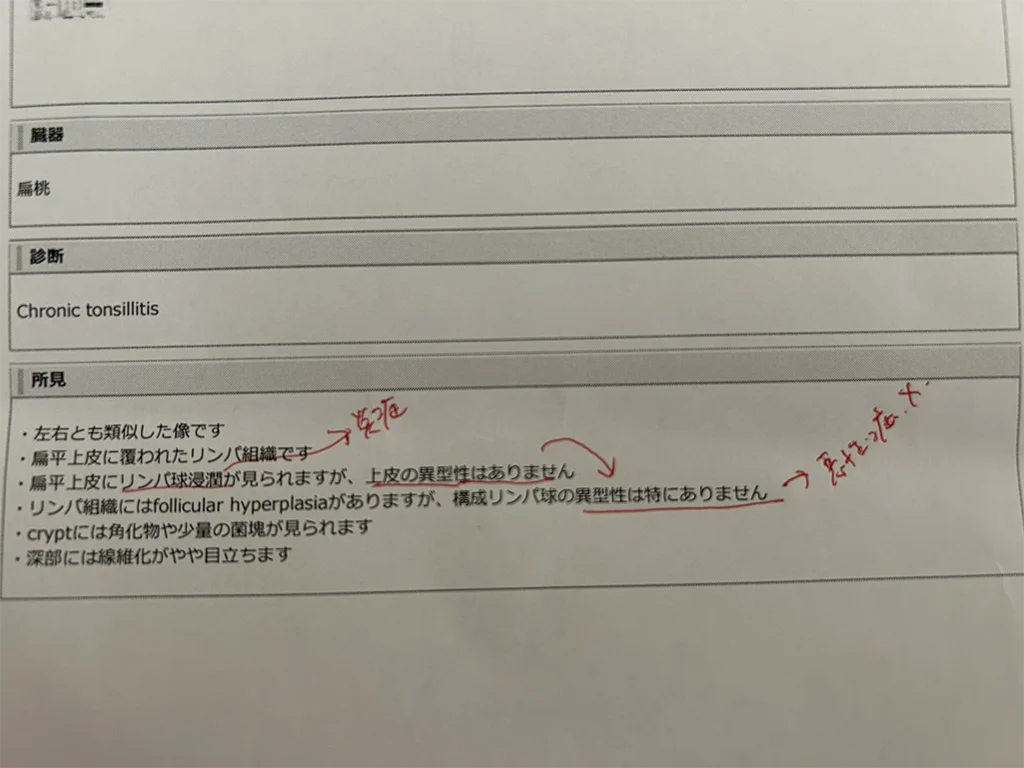 臓器
扁桃
診断
Chronic tonsillitis
所見
・左右とも類似した像です
・扁平上皮に覆われたリンパ組織です
・扁平上皮にリンパ球浸潤が見られますが、上皮の異型性はありません
・リンパ組織にはfollicular hyperplasiaがありますが、構成リンパ球の異型性は特にありません
・cryptには角化物や少量の菌塊が見られます
・深部には線維化がやや目立ちます
炎症